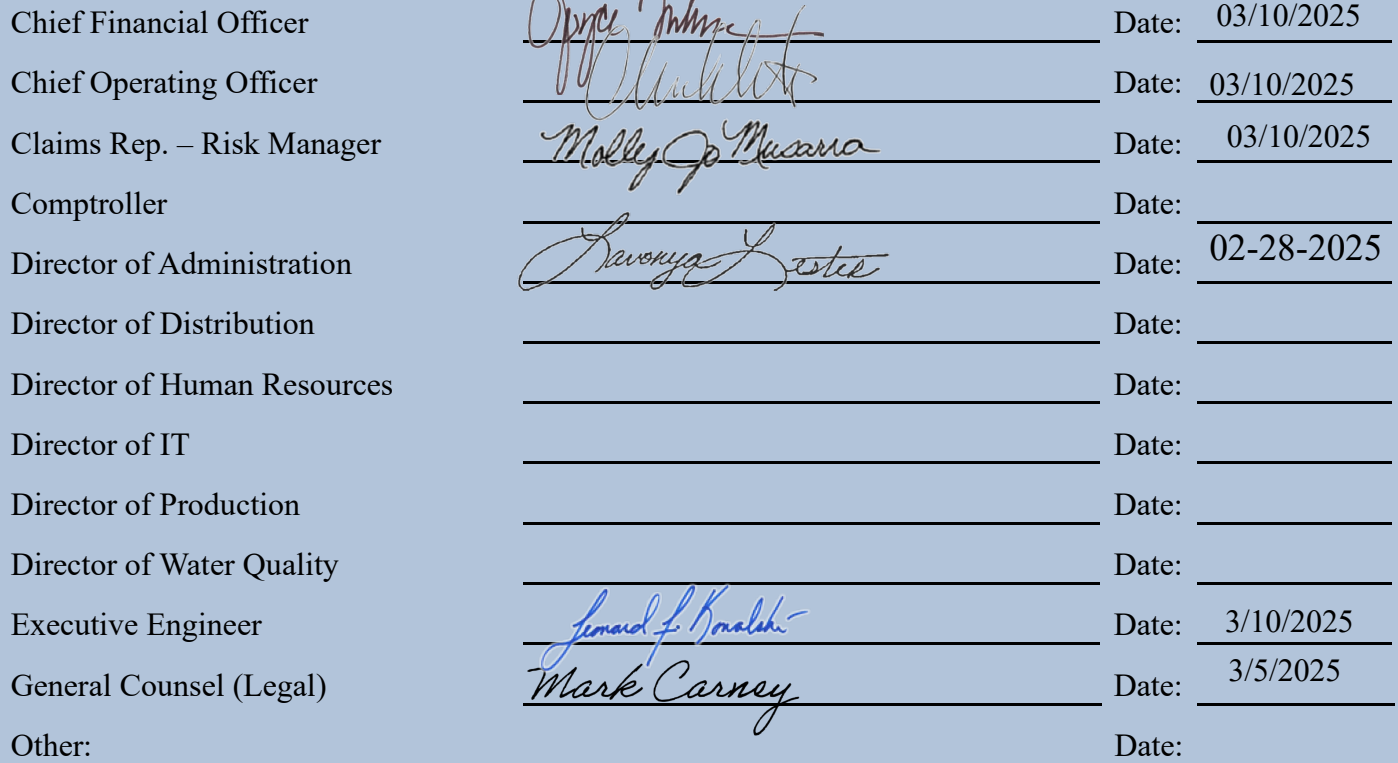 Chief Financial Officer Date: 03/10/2025
Chief Operating Officer Date: 03/10/2025
Claims Rep. – Risk Manager Molly Jo Musarra Date: 03/10/2025
Comptroller Date:
Director of Administration Lavonya Lester Date: 02-28-2025
Director of Distribution Date:
Director of Human Resources Date:
Director of IT Date:
Director of Production Date:
Director of Water Quality Date:
Executive Engineer Leonard F. Kowalski Date: 3/10/2025
General Counsel (Legal) Mark Carney Date: 3/5/2025
Other: Date: